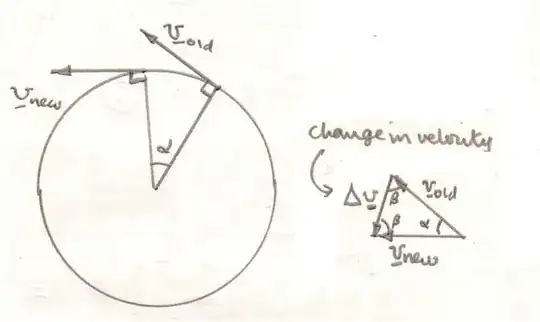 v old
v new
α
change in velocity
Δ v
v old
β
β
α
v new